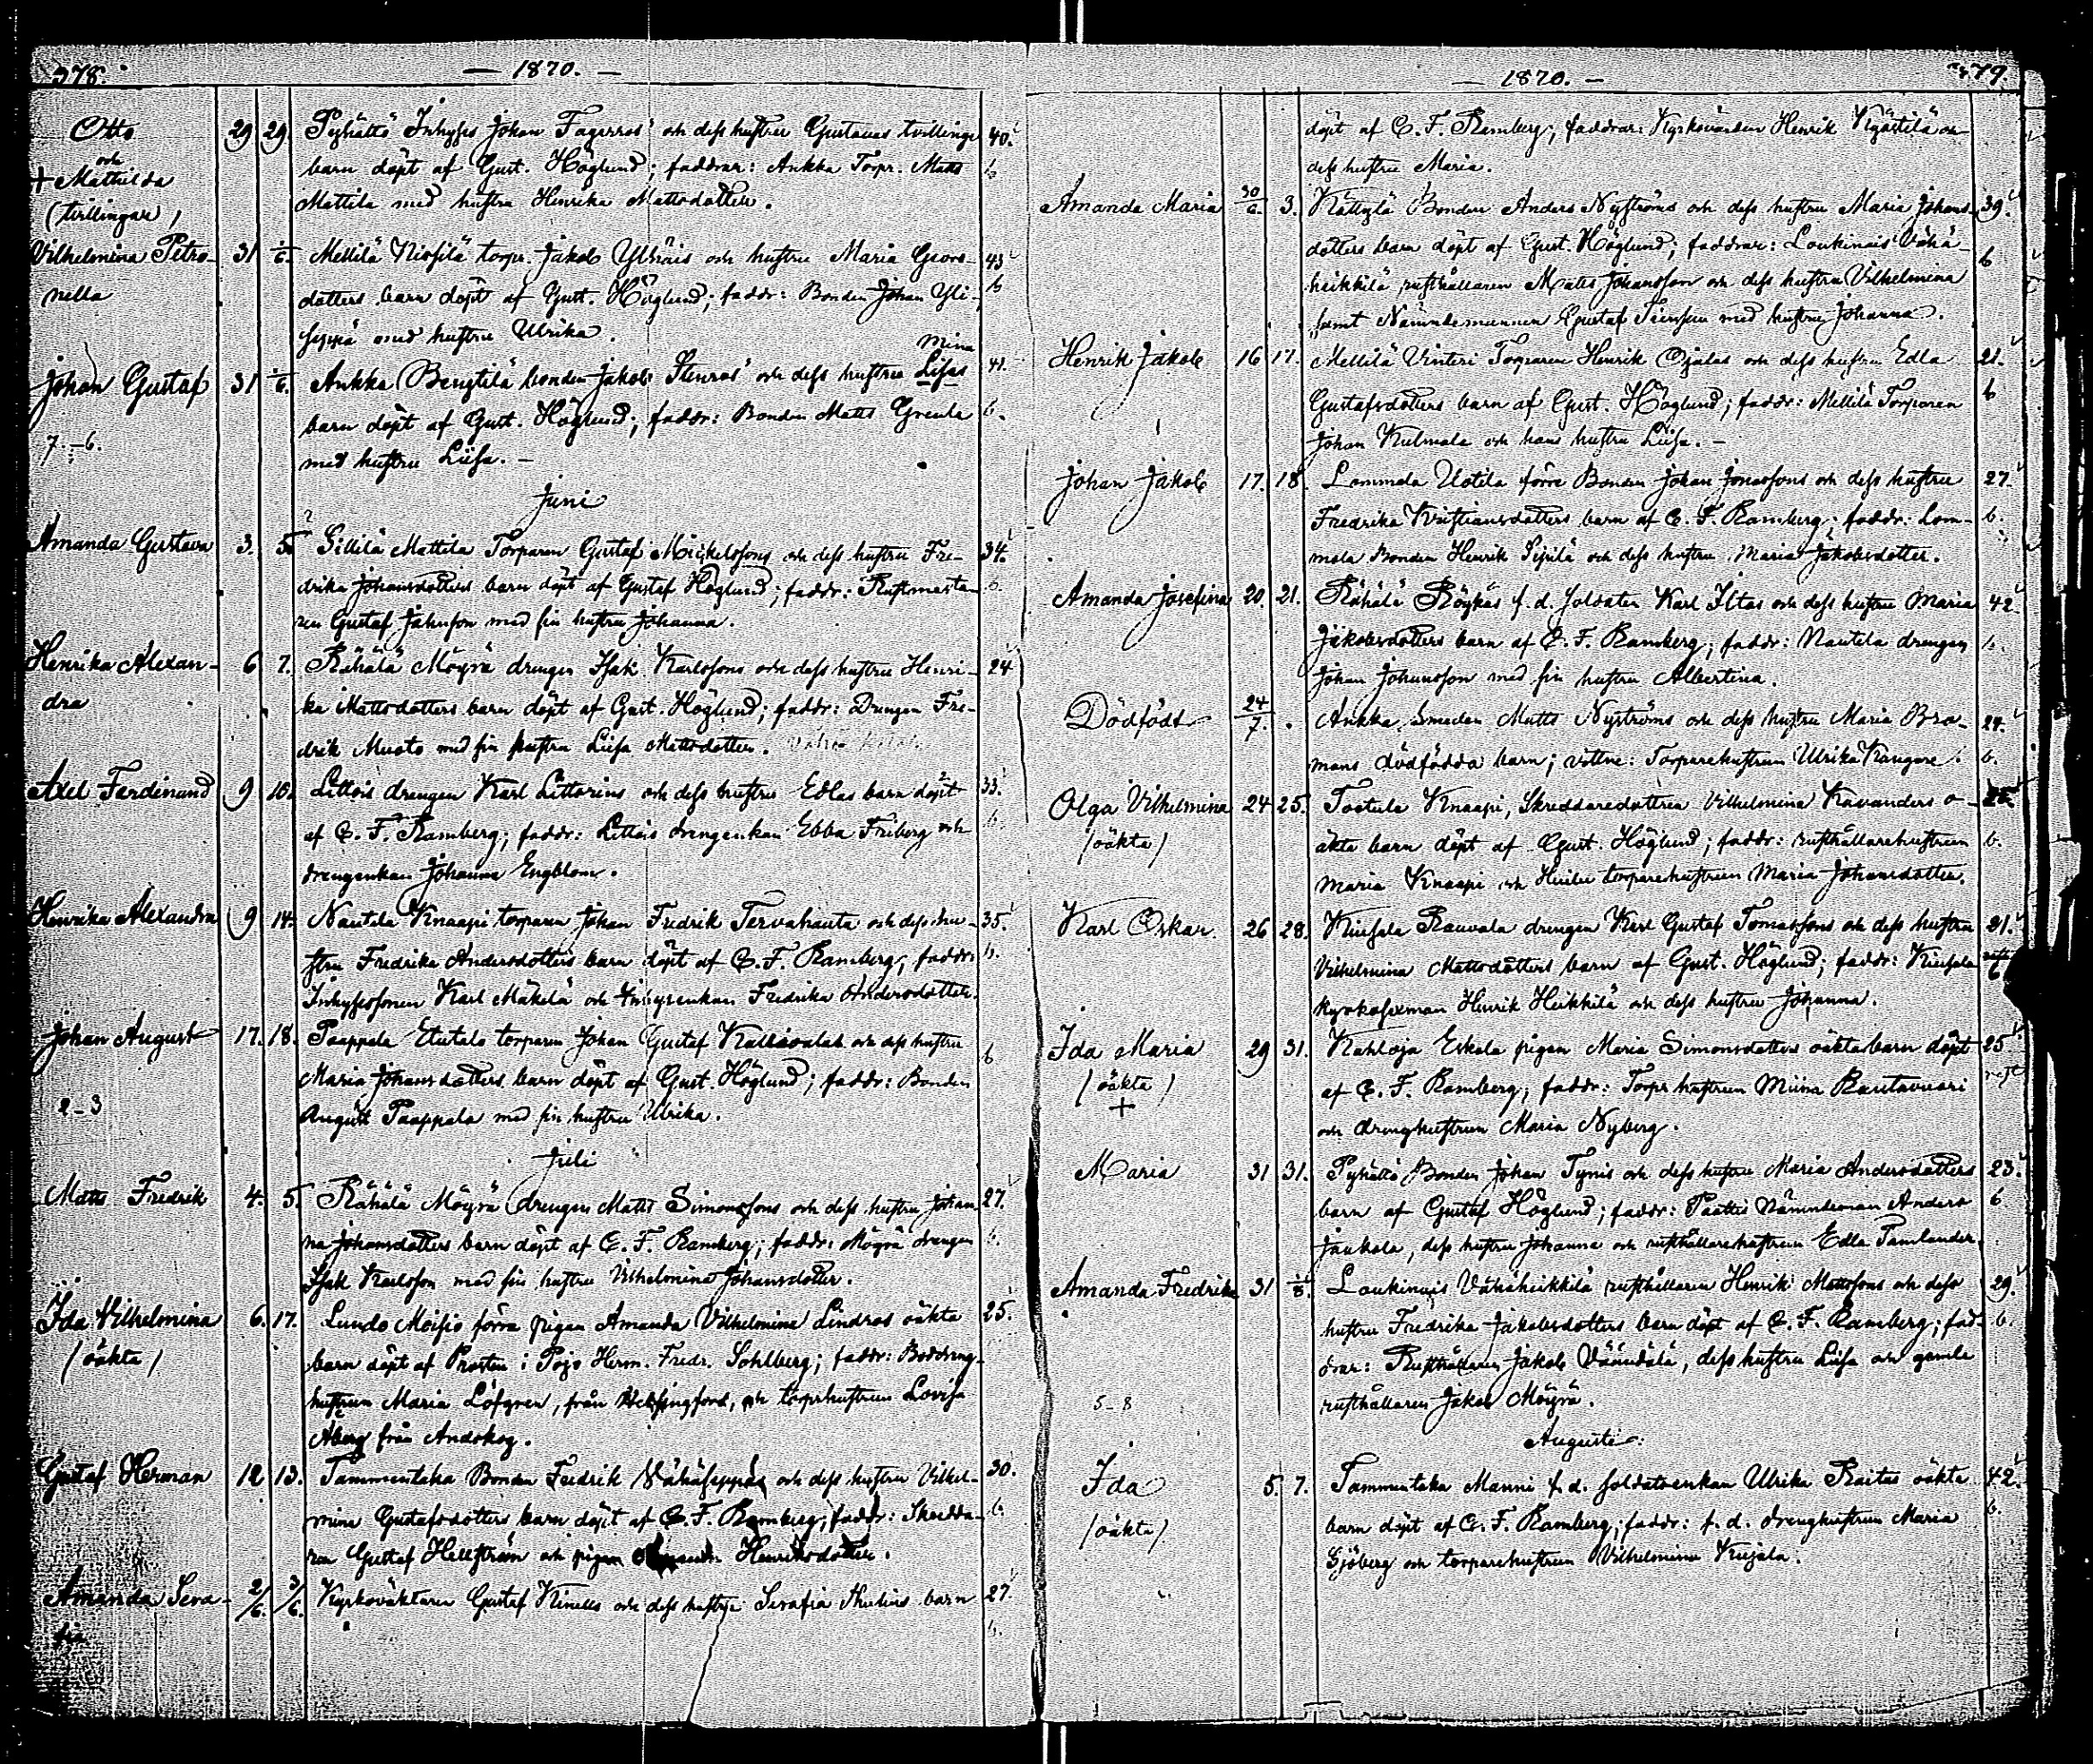 378.
— 1870. —
Otto
och
+ Mathilda
(tvillingar)
29 29. Pyhältö Inhyses Johan Fagerros' och dess hustru Gustavas tvillinge 40.
barn döpt af Gust. Höglund; faddrar: Aukka Torpr. Matts 6
Mattila med hustru Henrika Mattsdotter.
Vilhelmina Petro- 31 1/6. Mellilä Nissilä torpr. Jakob och hustru Maria 43
nella
dotters barn döpt af Gust. Höglund; faddr: Bonden Johan Yli- 6
seppä med hustru Ulrika.
Mina
Johan Gustaf 31 1/6. Aukka Bengtilä bonden Jakob Stenros' och dess hustru Lisas 41.
barn döpt af Gust. Höglund; faddr: Bonden Matts Greula 6.
7.-6.
med hustru Liisa. —
Juni
Amanda Gustava 3. 5. Sillilä Mattila Torparen Gustaf Mickelssons och dess hustru Fre- 34.
drika Johansdotters barn döpt af Gustaf Höglund; faddr: Rustmästa- 6.
ren Gustaf Jahnson med sin hustru Johanna.
Henrika Alexan- 6 7. Rähälä Möyrä drengen Isak Karlssons och dess hustru Henri- 24
dra
ka Mattsdotters barn döpt af Gust. Höglund; faddr: Drengen Fre-
drik Muots med sin hustru Liisa Mattsdotter.
Axel Ferdinand 9 10. Littois drengen Karl Littorins och dess hustrus Edlas barn döpt 33.
af C. F. Ramberg; faddr: Littois drengenkan Ebba Friberg och 6.
drengenkan Johanna Engblom.
Henrika Alexandra 9 14. Nautela Knaapi torparen Johan Fredrik Tervahauta och dess hu- 35.
stru Fredrika Andersdotters barn döpt af C. F. Ramberg; faddr: 6.
Inhysessonen Karl Mäkelä och Inhysenkan Fredrika Andersdotter.
Johan August 17. 18. Paappala Etutalo torparen Johan Gustaf och dess hustru
Maria Johansdotters barn döpt af Gust. Höglund; faddr: Bonden 6
2-3
August Paappala med sin hustru Ulrika.
Juli
Matts Fredrik 4. 5. Rähälä Möyrä drengen Matts Simonssons och dess hustru Johan- 27.
na Johansdotters barn döpt af C. F. Ramberg; faddr: Möyrä drengen 6.
Isak Karlsson med sin hustru Vilhelmina Johansdotter.
Ida Vilhelmina 6. 17. Lundo Moisio förra pigan Amanda Vilhelmina Lindros oäkta 25.
(oäkta)
barn döpt af Prosten i Pojo Herm. Fredr. Sohlberg; faddr:
hustrun Maria Löfgren, från Helsingfors, och torprhustrun Lovisa
Åberg från Andskog.
Gustaf Herman 12 13. Tammentaka Bonden Fredrik Vähäseppäs och dess hustru Vilhel- 30.
mina Gustafsdotters barn döpt af C. F. Ramberg; faddr: Skredda- 6.
ren Gustaf Hellström och pigan Henriksdotter.
Amanda Sera- 2/6. 3/6. Kyrkoväktaren Gustaf Kinells och dess hustru Serafia barn 27.
fia
6.
— 1870. —
379.
döpt af C. F. Ramberg; faddrar: Kyrkovärden Henrik och
dess hustru Maria.
Amanda Maria 30/6. 3. Kättylä Bonden Anders Nyströms och dess hustru Maria Johans- 39.
dotters barn döpt af Gust. Höglund; faddrar: Loukinais Vähä- 6
heikkilä rusthållaren Matts Johansson och dess hustru Vilhelmina
samt Nämndemannen Gustaf med hustru Johanna.
Henrik Jakob 16 17. Mellilä Vinteri Torparen Henrik Ojalas och dess hustru Edla 21.
Gustafsdotters barn af Gust. Höglund; faddr: Mellilä Torparen 6
Johan Kulmala och hans hustru Liisa. —
Johan Jakob 17. 18. Lommola Uotila förre Bonden Johan Jonassons och dess hustru 27.
Fredrika Kristiansdotters barn af C. F. Ramberg; faddr: Lom- 6.
mola Bonden Henrik Sipilä och dess hustru Maria Jakobsdotter.
Amanda Josefina 20. 21. Rähälä Röykäs f. d. soldaten Karl Iltas och dess hustru Maria 42.
Jakobsdotters barn af C. F. Ramberg; faddr: Nautela drengen 6.
Johan Johansson med sin hustru Albertina.
Dödfödt 24/7. . Aukka Smeden Matts Nyströms och dess hustru Maria Bro- 24.
mans dödfödda barn; vittne: Torparehustrun Ulrika Kangare. 6.
Olga Vilhelmina 24 25. Tootula Knaapi, Skreddaredottren Vilhelmina Kavanders o-
(oäkta)
äkta barn döpt af Gust. Höglund; faddr: rusthållarehustrun 6.
Maria Knaapi och torparehustrun Maria Johansdotter.
Karl Oskar. 26 28. Kiusala Rauvola drengen Karl Gustaf Tomassons och dess hustru 21.
Vilhelmina Mattsdotters barn af Gust. Höglund; faddr: Kiusala 6
kyrkosexman Henrik Heikkilä och dess hustru Johanna.
Ida Maria 29 31. Kahloja Eskola pigan Maria Simonsdotters oäkta barn döpt 25
(oäkta)
+
af C. F. Ramberg; faddr: Torpr hustrun Miina Rautavuori
och drenghustrun Maria Nyberg.
Maria 31 31. Pyhältö Bonden Johan Tynis och dess hustru Maria Andersdotters 23.
barn af Gustaf Höglund; faddr: Paattis Nämndeman Anders 6
Jaakola, dess hustru Johanna och rusthållarehustrun Edla Tamlander.
Amanda Fredrika 31 1/8. Loukinais Vähäheikkilä rusthållaren Henrik Mattssons och dess 29.
hustru Fredrika Jakobsdotters barn döpt af C. F. Ramberg; fad- 6.
drar: Rusthållaren Jakob Väänälä, dess hustru Liisa och gamle
5-8
rusthållaren Jakob Möyrä.
Augusti:
Ida 5. 7. Tammentaka Manni f. d. soldatenkan Ulrika Raitas oäkta 42.
(oäkta)
barn döpt af C. F. Ramberg; faddr: f. d. drenghustrun Maria 6.
Sjöberg och torparehustrun Vilhelmina Kujala.